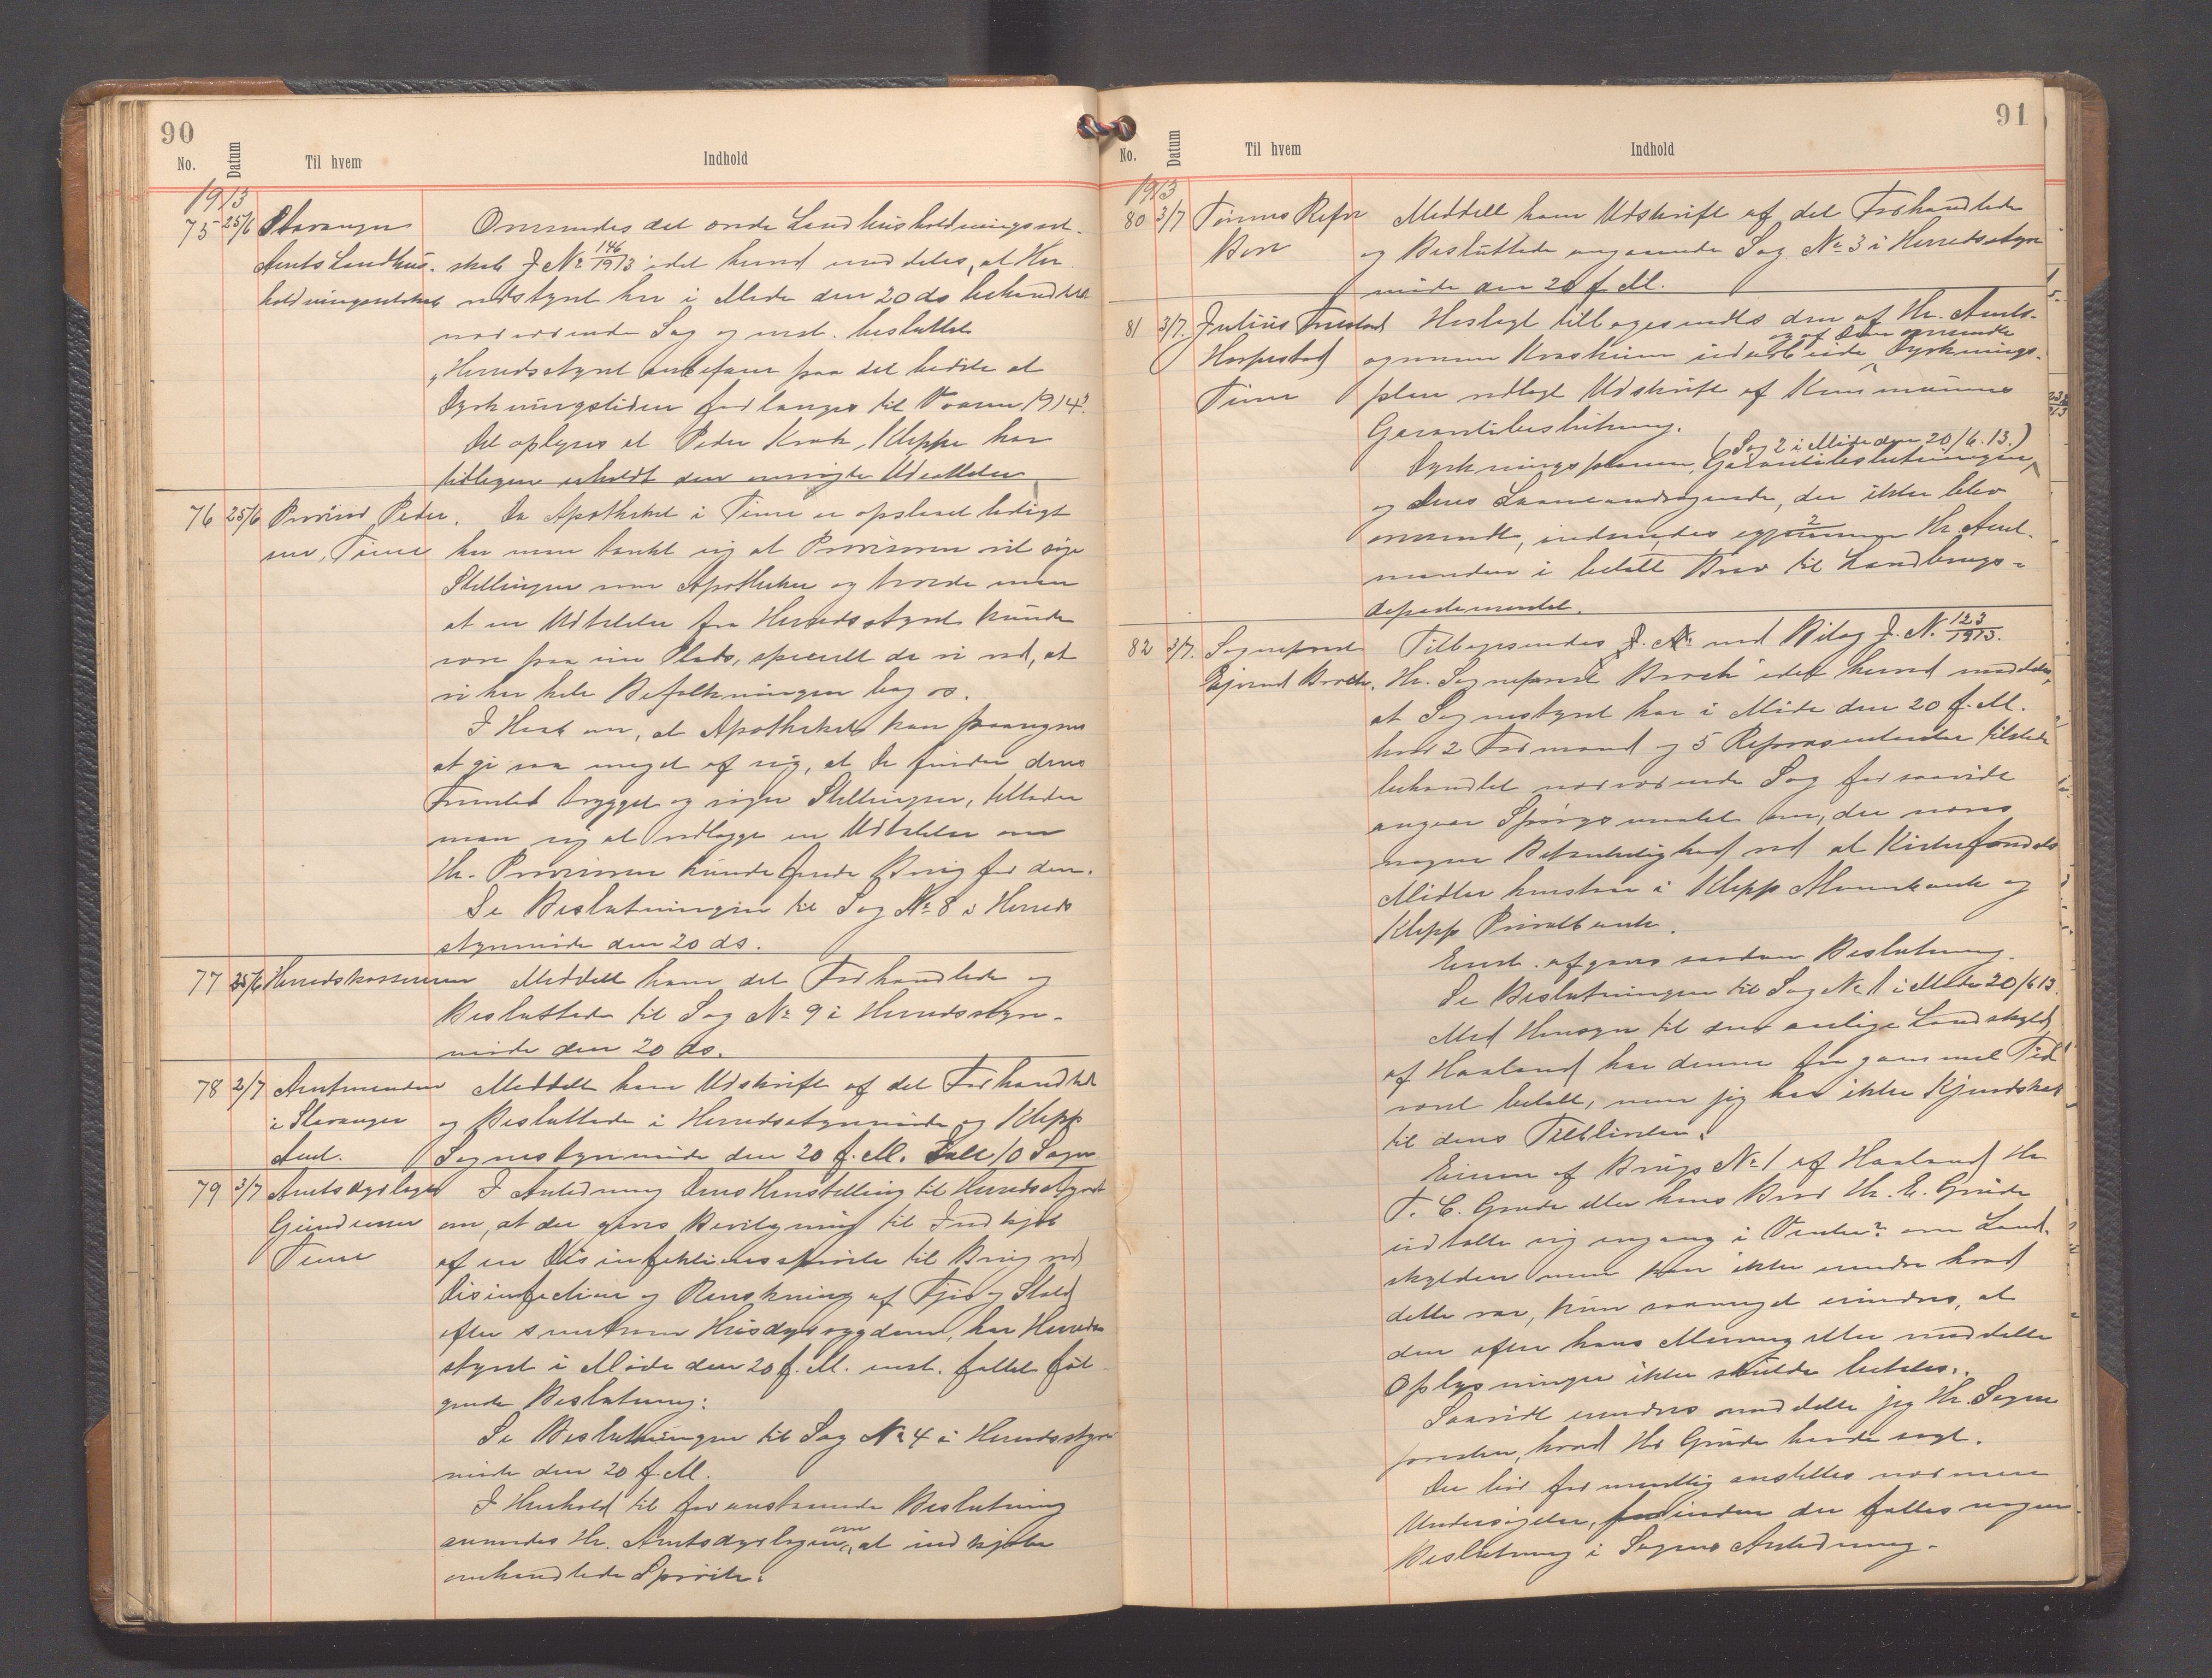 90
No. Datum Til hvem Indhold
1913
75 25/6 Stavanger Omsendes det ærede Landhusholdningssel-
Amts Landhus- skab J No 146/1913 idet herved meddeles, at Her-
holdningsselskab redsstyret har i Møde den 20 ds behandlet
nærværende Sag og enst. besluttet
"Herredsstyret anbefaler paa det bedste at
Dyrkningstiden forlænges til Vaaren 1914".
Det oplyses at Peder Krak, Kleppe har
tidligere erholdt den
76 25/6 Provisor Peder- Da Apotheket i Time er opslaaet ledigt
sen, Time har man tænkt sig at Provisoren vil søge
Stillingen som Apotheker og troede man
at en Udtalelse fra Herredsstyret kunde
være paa sin Plads, specielt da vi ved, at
vi har hele Befolkningen bag os.
I Haab om, at Apotheket kan paaregnes
at gi saa meget af sig, at De finder deres
Fremtid trygget og søger Stillingen, tillader
man sig at vedlægge en Udtalelse om
Hr. Provisoren kunde finde Brug for den.
Se Beslutningen til Sag No 8 i Herreds
styremøde den 20 ds.
77 25/6 Herredskassereren Meddelt ham det Forhandlede og
Besluttede til Sag No 9 i Herredsstyre-
møde den 20 ds.
78 2/7 Amtmanden Meddelt ham Udskrift af det Forhandlede
i Stavanger og Besluttede i Herredsstyremøde og Klepp
Amt. Sognestyremøde den 20 f. M. Ialt 10 Sager
79 3/7 Amtsdyrlæge I Anledning Deres Henstilling til Herredsstyret
Gundersen om, at der gives Bevilgning til Indkjøb
Time af en Disinfektionssprøite til Brug ved
Disinfection og Renskning af Fjøs og Stald
efter smitsom Husdyrsygdom, har Herreds
styret i Møde den 20 f. M. enst. fattet føl-
gende Beslutning:
Se Beslutningen til Sag No 4 i Herredsstyre
møde den 20 f. M.
I Henhold til foranstaaende Beslutning
anmodes Hr. Amtsdyrlægen om at indkjøbe
omhandlede Sprøite.
91
No. Datum Til hvem Indhold
1913
80 3/7 Tønnes Refsn Meddelt ham Udskrift af det Forhandlede
Bore og Besluttede angaaende Sag No 3 i Herredsstyre
møde den 20 f. M.
81 3/7. Julius Friestad Hoslagt tilbagesendes den af Hr. Amts-
Horpestad agronom Kvasheim udarbeide og af Dem omsendte Dyrknings-
Time plan vedlagt Udskrift af Kommunens
Garantibeslutning.
(Sag 2 i Møde den 20/6.13.)
Dyrkningsplanen, Garantibeslutningen,
og Deres Laaneandragende, der ikke blev
omsendt, indsendes Hr. Amt-
manden i betalt Brev til Landbrugs-
departementet.
82 3/7. Sogneprest Tilbagesendes J. No med Bilag J. N. 123/1913.
Eyvind Broch. Hr. Sogneprest Broch idet herved meddeles,
at Sognestyret har i Møde den 20 f. M.
hvor 2 Formænd og 5 Repræsentanter tilstede
behandlet nærværende Sag forsaavidt
angaar Spørgsmaalet om, der næres
nogen Betænkelighed ved at Kirkefondets
Midler henstaar i Klepp Almenbank og
Klepp Privatbank.
Enst. afgaves saadan Beslutning.
Se Beslutningen til Sag No 1 i Møde 20/6 13.
Med Hensyn til den aarlige Landskyld
af Haaland har denne fra gammel Tid
været betalt, men jeg har ikke Kjendskab
til dens Tilblivelse.
Eieren af Brugs No 1 af Haaland Hr
T. C. Grude eller hans Bror Hr. E. Grude
udtalte sig engang i om Land-
skylden men kan ikke mindre hvad
dette var, kun saameget erindres, at
den efter hans Mening eller meddelte
Oplysninger ikke skulde betales.
Saavidt erindres meddelte jeg Hr. Sogne
presten, hvad Hr Grude havde sagt.
Der bør formentlig anstilles nærmere
Undersøgelse, forinden der fattes nogen
Beslutning i Sagens Anledning.